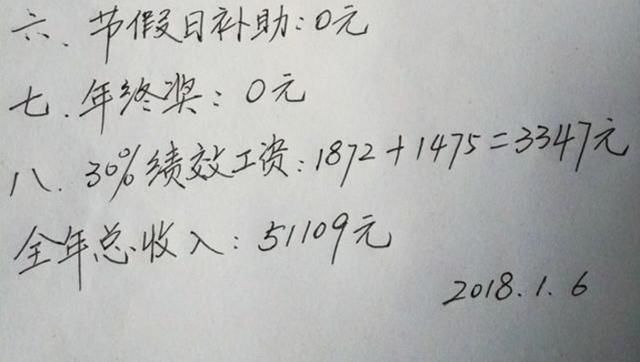 六、节假日补助:0元
七、年终奖:0元
八、30%绩效工资:1872+1475=3347元
全年总收入:51109元
2018.1.6